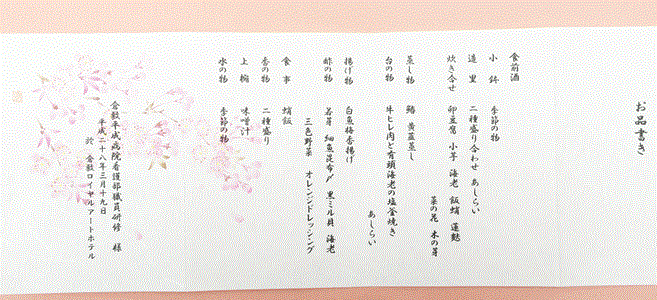 お品書き
食前酒
小鉢 季節の物
造里 二種盛り合わせ あしらい
炊き合せ 卯豆腐 小芋 海老 飯蛸 蓮麩
菜の花 木の芽
蒸し物 鰆 黄蓋蒸し
台の物 牛ヒレ肉と有頭海老の塩釜焼き
あしらい
揚げ物 白魚梅香揚げ
酢の物 若芽 細魚昆布〆 黒ミル貝 海老
三色野菜 オレンジドレッシング
食事 蛸飯
香の物 二種盛り
上椀 味噌汁
水の物 季節の物
倉敷平成病院看護部職員研修 様
平成二十八年三月十九日
於 倉敷ロイヤルアートホテル